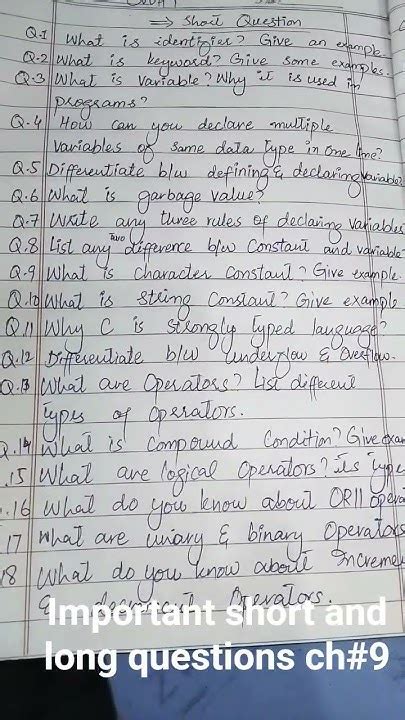 ⇒ Short Question
Q.1 What is identifier? Give an example.
Q.2 What is keyword? Give some examples.
Q.3 What is variable? Why it is used in
programs?
Q.4 How can you declare multiple
variables of same data type in one line?
Q.5 Differentiate b/w defining & declaring variable?
Q.6 What is garbage value?
Q.7 Write any three rules of declaring variables
Q.8 List any two difference b/w Constant and variable
Q.9 What is character constant? Give example.
Q.10 What is string constant? Give example
Q.11 Why C is strongly typed language?
Q.12 Differentiate b/w underflow & Overflow.
Q.13 What are Operators? List different
types of operators.
Q.14 What is Compound Condition? Give exam
.15 What are logical Operators? its type
.16 What do you know about OR|| opera
17 What are uniary & binary Operators
18 What do you know about Increme
Operators.
Important short and
long questions ch#9